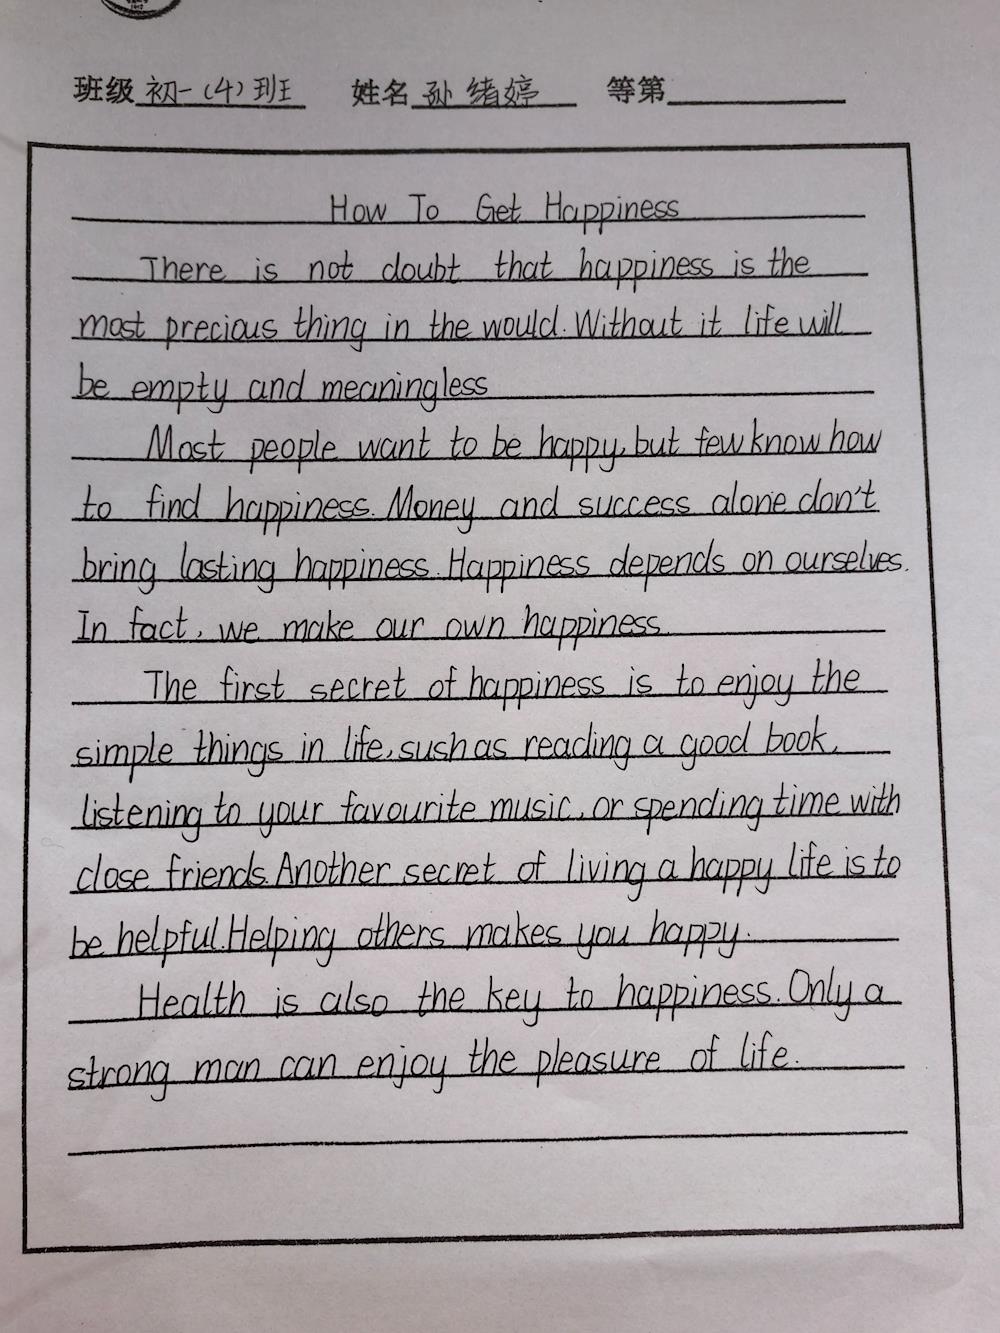 班级 初一(4)班 姓名 孙绪婷 等第
How To Get Happiness
There is not doubt that happiness is the
most precious thing in the would. Without it life will
be empty and meaningless
Most people want to be happy, but few know how
to find happiness. Money and success alone don't
bring lasting happiness. Happiness depends on ourselves.
In fact, we make our own happiness.
The first secret of happiness is to enjoy the
simple things in life, sush as reading a good book,
listening to your favourite music, or spending time with
close friends. Another secret of living a happy life is to
be helpful. Helping others makes you happy.
Health is also the key to happiness. Only a
strong man can enjoy the pleasure of life.